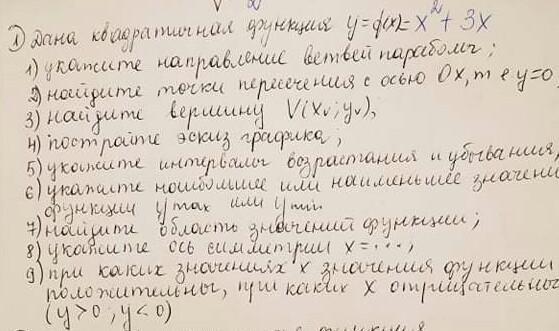 1) Дана квадратичная функция y=f(x)=x²+3x
1) укажите направление ветвей параболы;
2) найдите точки пересечения с осью Ox, т е y=0
3) найдите вершину V(xᵥ; yᵥ);
4) постройте эскиз графика;
5) укажите интервалы возрастания и убывания,
6) укажите наибольшее или наименьшее значени
функции y max или y min.
7) найдите область значений функции;
8) укажите ось симметрии x=...;
9) при каких значениях x значения функции
положительны, при каких x отрицательны
(y>0; y<0)
функция